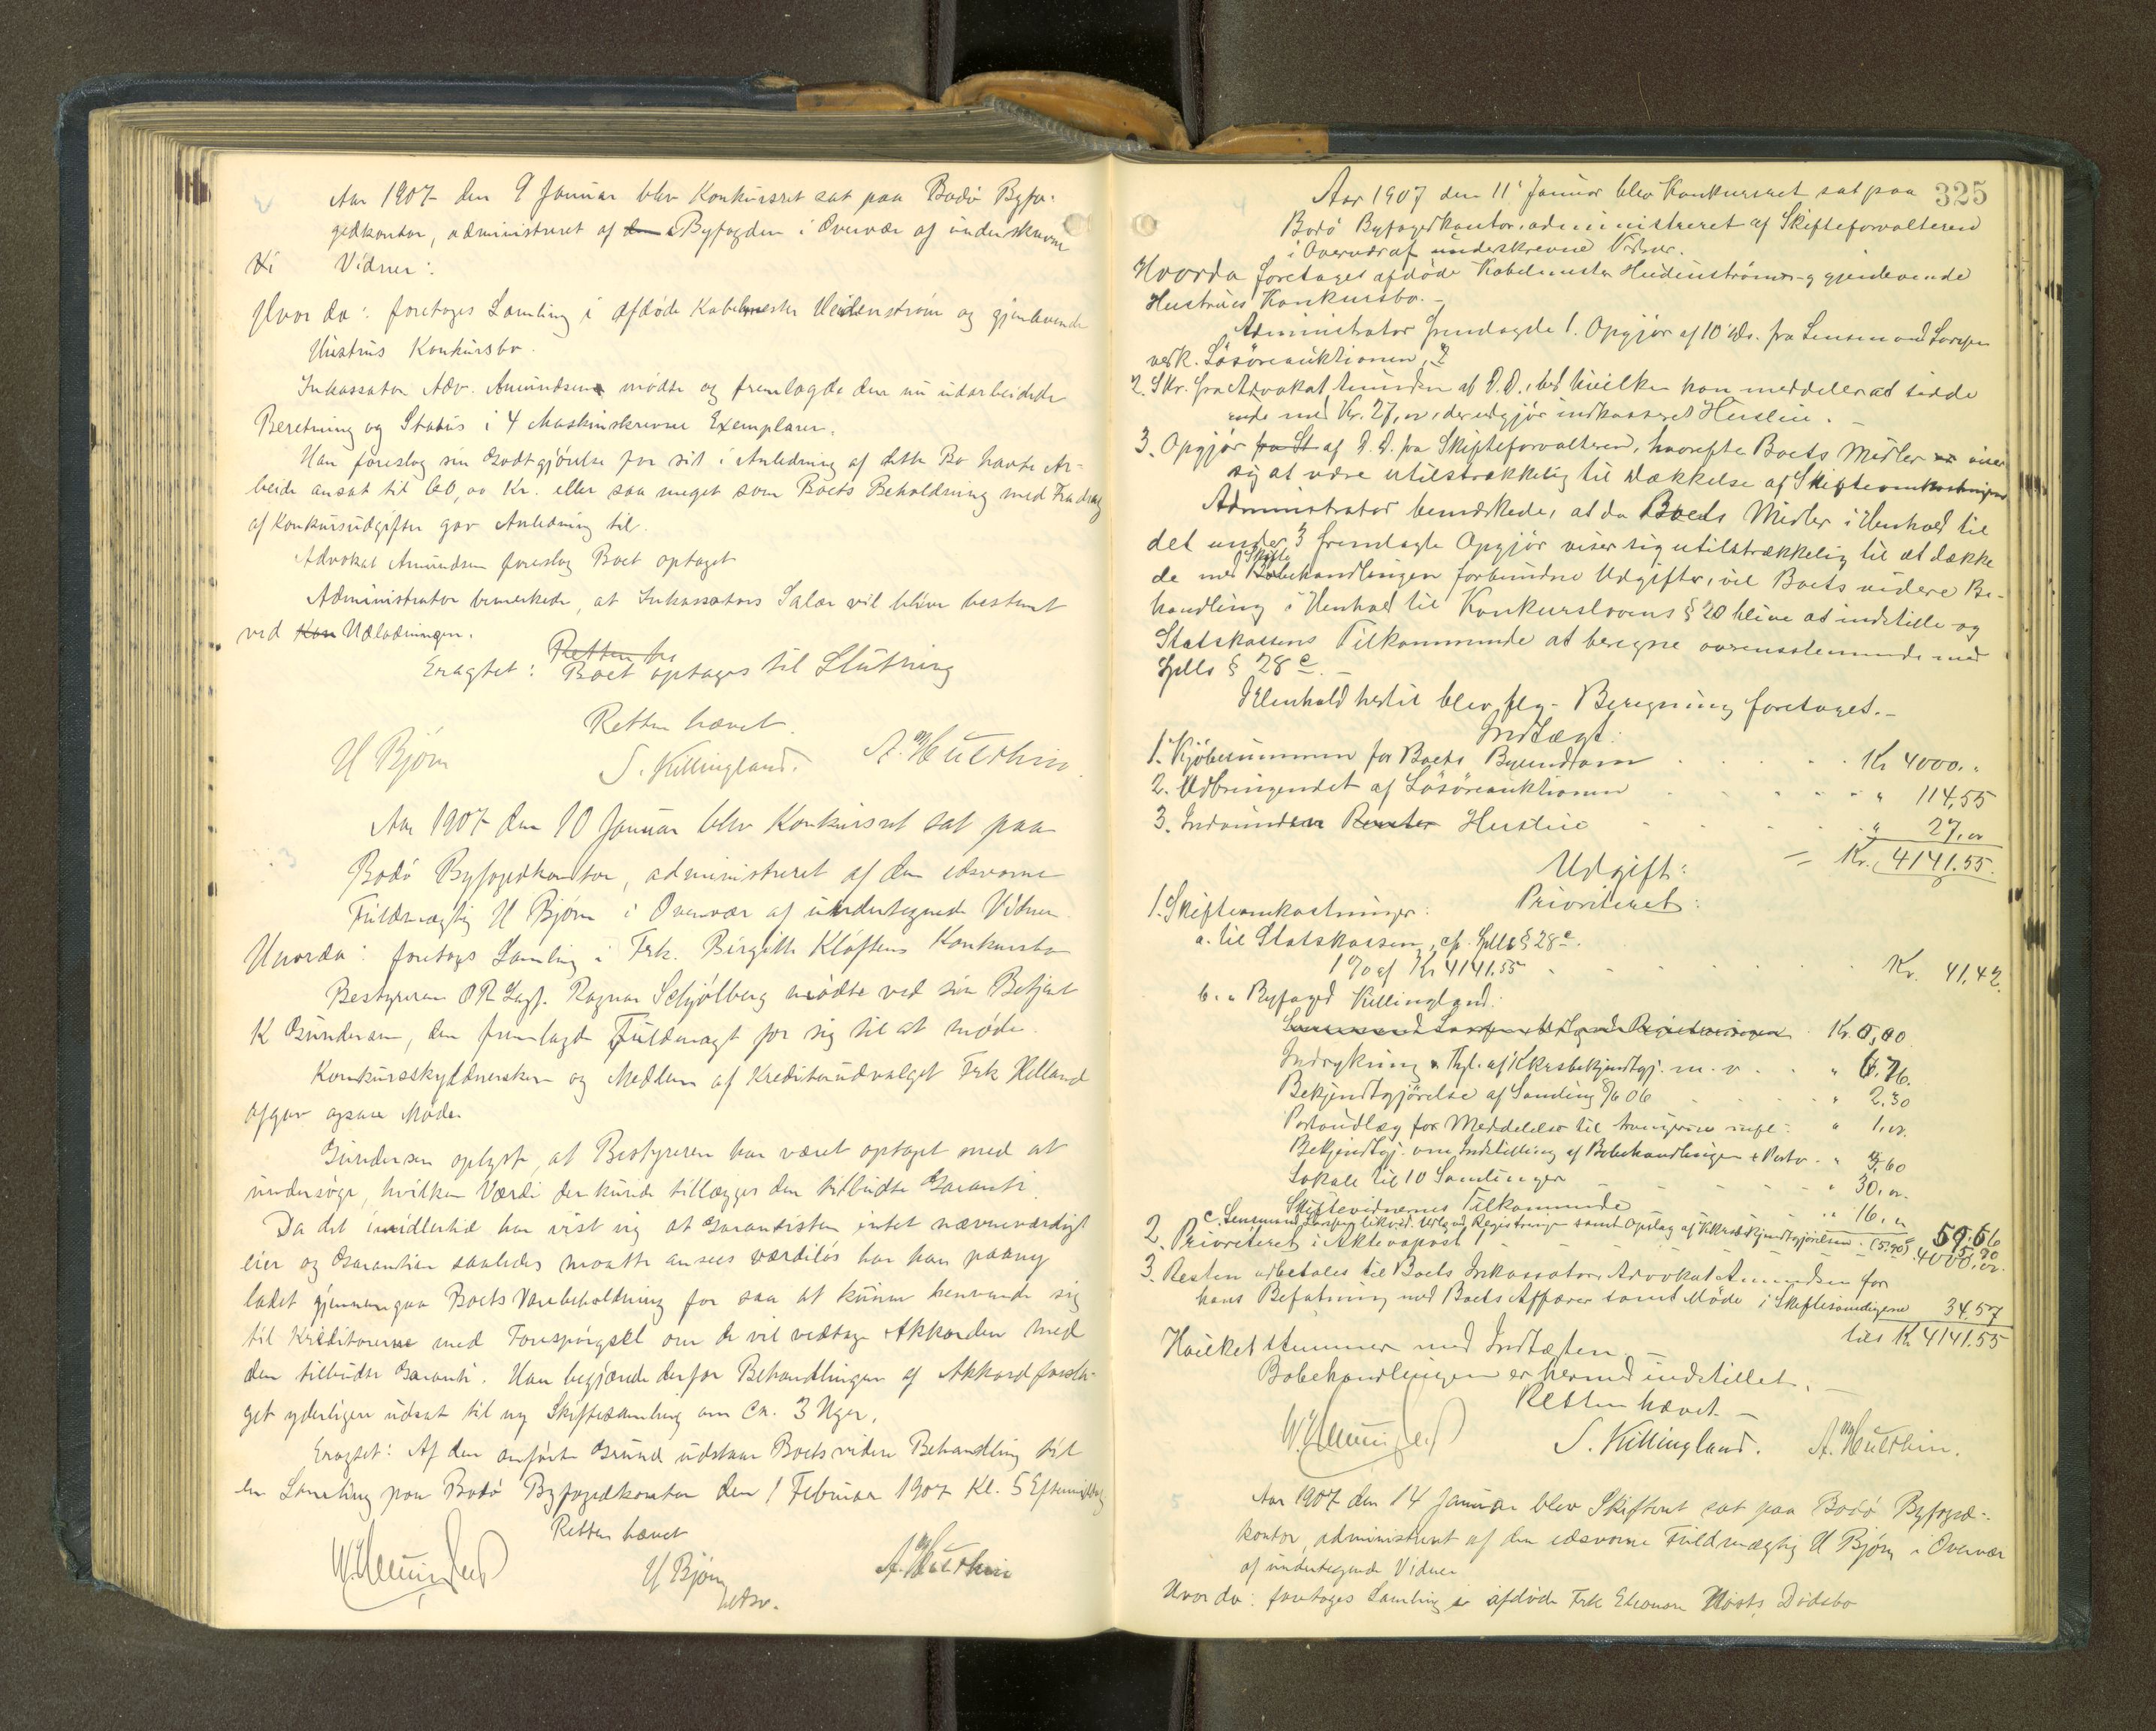 2
Aar 1907 den 9 Januar blev Konkursret sat paa Bodö Byfo-
gedkontor, administreret af den Byfogden i Overvær af underskrevne
Vidner:
Hvor da: foretages Samling i afdöde Kabelmester Heidenström og gjenlevende
Hustrus Konkursbo.
Inkassator Adv. Amundsen mödte og fremlagde den nu udarbeidede
Beretning og Status i 4 Maskinskrevne Exemplarer.
Han foreslog sin Godtgjörelse for sit i Anledning af dette Bo havte Ar-
beide ansat til 60,00 Kr. eller saa meget som Boets Beholdning med Fradrag
af Konkursudgifter gav Anledning til.
Advokat Amundsen foreslog Boet optaget
Administrator bemerkede, at Inkassators Salær vil blive bestemt
ved Kon Udlodningen.
Retten he
Eragtet: Boet optages til Slutning
Retten hævet.
H Bjørn S. Killingland. A. Multhin.
3
Aar 1907 den 10 Januar blev Konkursret sat paa
Bodö Byfogedkontor, administreret af den edsvorne
Fuldmægtig H Bjørn i Overvær af undertegnede Vidner
Hvorda: foretages Samling i Frk. Birgitte Kløftens Konkursbo
Bestyreren OR Sagf. Ragnar Schjölberg mödte ved sin Betjent
K Gundersen, der fremlagde Fuldmagt for sig til at möde.
Konkursskyldnersken og Medlem af Kreditorudvalget Frk Helland
afgav ogsaa Möde.
Gundersen oplyste, at Bestyreren har været optaget med at
undersöge, hvilken Værdi der kunde tillægges den tilbudte Garanti.
Da det imidlertid har vist sig at Garantisten intet nævneværdigt
eier og Garantien saaledes maatte ansees værdilös har han paany
ladet gjennemgaa Boets Varebeholdning for saa at kunne henvende sig
til Kreditorerne med Forespörgsel om de vil vedtage Akkorden med
den tilbudte Garanti. Han begjærede derfor Behandlingen af Akkordforsla-
get yderligere udsat til ny Skiftesamling om Ca. 3 Uger.
Eragtet: Af den anförte Grund udstaar Boets videre Behandling til
en Samling paa Bodö Byfogedkontor den 1 Februar 1907 Kl. 5 Eftermiddag
Retten hævet
H Bjørn A. Multhin
325
4
Aar 1907 den 11' Januar blev Konkursret sat paa
Bodö Byfogedkontor, administreret af Skifteforvalteren
i Overvær af underskrevne Vidner.
Hvorda foretages afdöde Kabelmester Heidenströms og gjenlevende
Hustrues Konkursbo. –
Administrator fremlagde 1. Opgjör af 10 ds. fra Lensmand
vedk. Lösöreauktionen,
2. Skr. fra Advokat Amundsen af D. D., ved hvilken han meddeler at sidde
inde med Kr. 27,00, der udgjör indkasseret Husleie.
3. Opgjör fra St af D. D. fra Skifteforvalteren, hvorefter Boets Midler viser
sig at være utilstrækkelig til Dækkelse af Skifteomkostninger
Administrator bemærkede, at da Boets Midler i Henhold til
det under 3 fremlagte Opgjör viser sig utilstrækkelig til at dække
de med Skifte Bobehandlingen forbundne Udgifter, vil Boets videre Be-
handling i Henhold til Konkurslovens § 20 blive at indstille og
Statskassens Tilkommende at beregne overensstemmende med
Spllo § 28 c. –
I Henhold hertil blev flg. Beregning foretaget. –
Indtægt:
1. Kjöbesummen for Boets Byeiendom Kr 4000. "
2. Udbringendet af Lösöreauktionen " 114,55
3. Indvunden Renter Husleie " 27,00
= Kr. 4141.55.
Udgift:
Prioriteret:
1. Skifteomkostninger:
a. til Statskassen, cfr. Spllo § 28 c.
1 % af Kr 4141.55 Kr. 41,42.
b. " Byfoged Killingland:
Kr. 0,00
Indrykning & Tgl. af Kkrsbekjendtgj. m. v. " 6.76.
Bekjendtgjörelse af Samling 06 " 2.30
Portoudlæg for Meddelelse til " 1,00.
Bekjendtgj. om Indstilling af Bobehandlingen + Porto. " 3,60
Lokale til 10 Samlinger " 30,00.
Skiftevidnernes Tilkommende " 16,00
59.66
c. Lensmand Larsen likvid. Udlæg ved Registreringen samt Opslag af Kkrsbekjendtgjörelsen (5.90) 5,90
2. Prioriteret i Aktivapost 4000,00.
3. Resten udbetales til Boets Inkassator, Advokat Amundsen for
hans Befatning med Boets Affærer samt Möde i Skiftesamlingerne 34.57
tils Kr 4141.55
Hvilket stemmer med Indtægten. –
Bobehandlingen er hermed indstillet. –
Retten hævet –
S. Killingland. A. Multhin.
5
Aar 1907 den 14 Januar blev Skifteret sat paa Bodö Byfoged-
kontor, administreret af den edsvorne Fuldmægtig H Bjørn i Overvær
af undertegnede Vidner
Hvor da: foretages Samling i afdöde Frk Eleonore Høsts Dødsbo